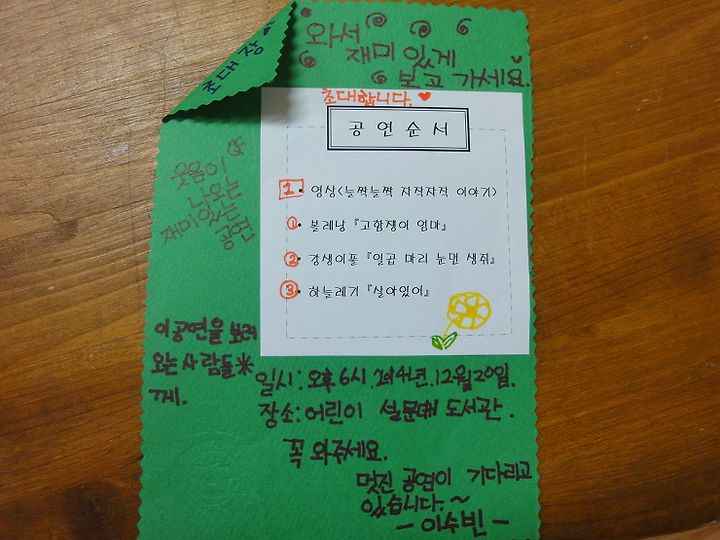 초대장
와서
재미있게
보고 가세요.
초대합니다.
공연순서
1. 영상(늘짝늘짝 자작자작 이야기)
① 볼레낭 『고함쟁이 엄마』
② 강생이풀 『일곱 마리 눈먼 생쥐』
③ 하늘레기 『살아있어』
웃음이
나오는
재미있는
공연
이공연을 보러
오는사람들
께.
일시: 오후6시. 2014년. 12월20일.
장소: 어린이 설문대 도서관.
꼭 와주세요.
멋진 공연이 기다리고
있습니다.~
- 이수빈 -